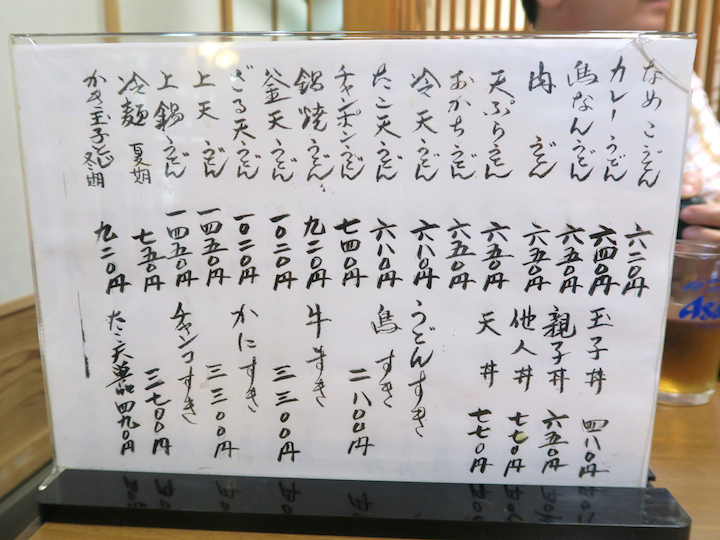 なめこうどん 六二〇円
カレーうどん 六四〇円
鳥なんうどん 六五〇円
肉うどん 六五〇円
天ぷらうどん 六五〇円
おかちうどん 六五〇円
冷天うどん 六八〇円
たこ天うどん 六八〇円
チャンポンうどん 七四〇円
鍋焼うどん 九二〇円
釜天うどん 一〇二〇円
ざる天うどん 一〇二〇円
上天うどん 一四五〇円
上鍋うどん 一四五〇円
冷麺 夏期 七五〇円
かき玉子とじ 冬期 九二〇円
玉子丼 四八〇円
親子丼 六五〇円
他人丼 七七〇円
天丼 七七〇円
うどんすき
鳥すき 二八〇〇円
牛すき 三三〇〇円
かにすき 三三〇〇円
チャンコすき 三七〇〇円
たこ天単品 四九〇円